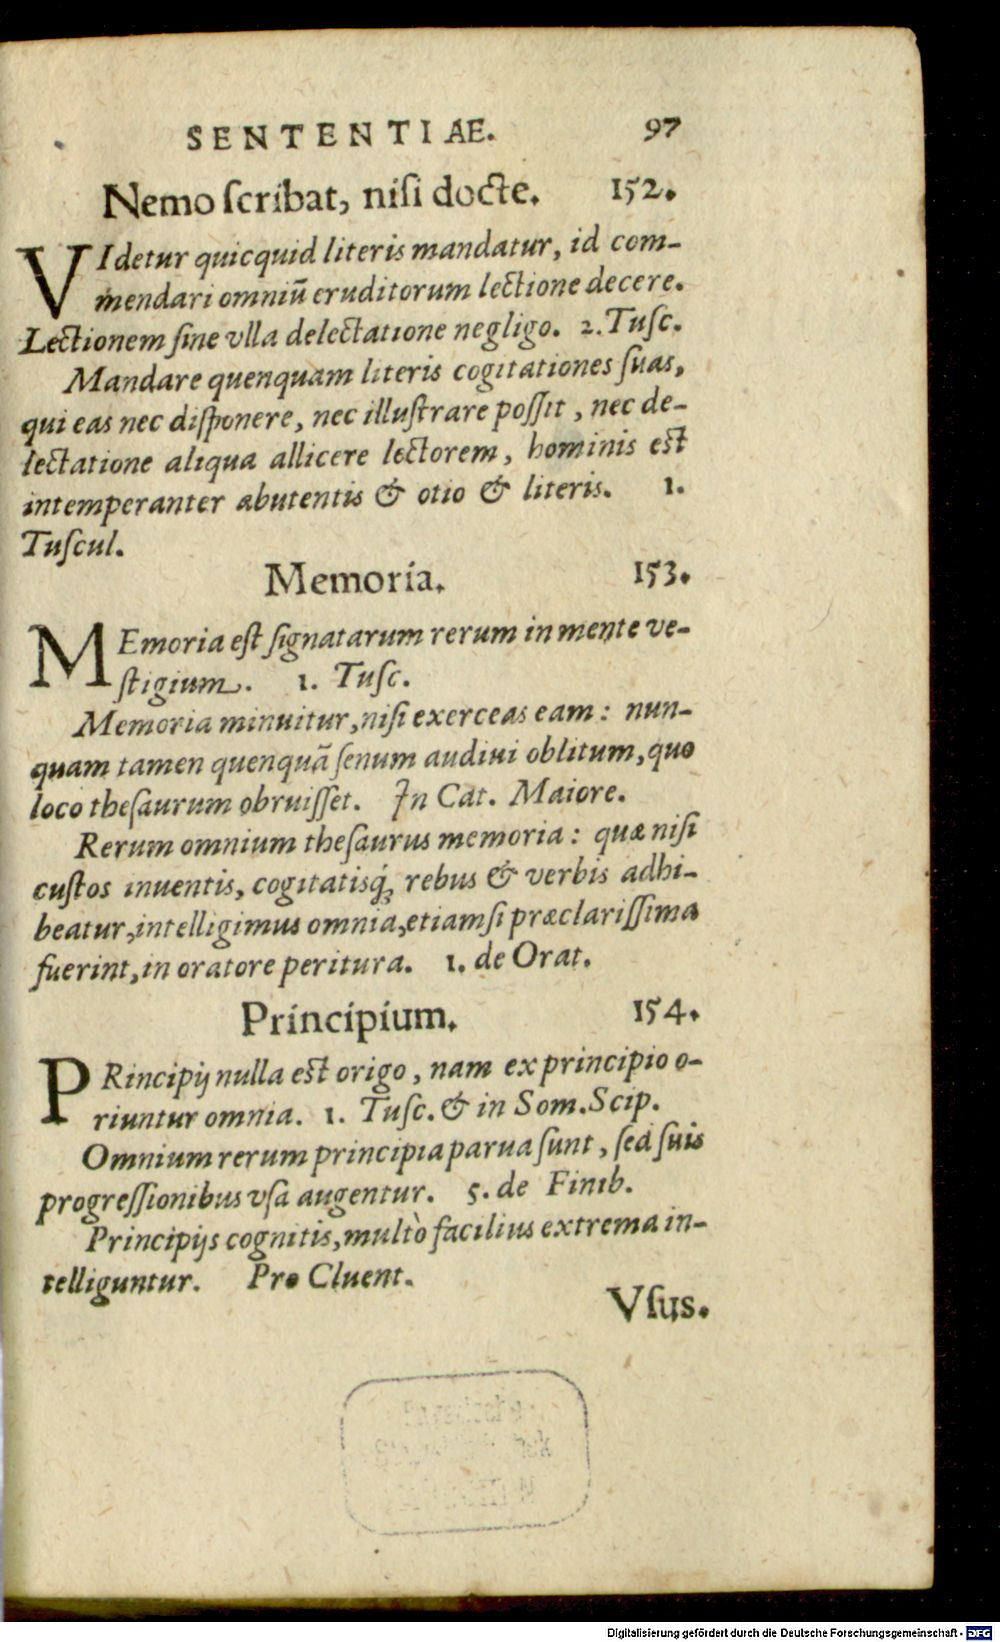 SENTENTIAE. 97
Nemo ſcribat, niſi docte. 152.
VIdetur quicquid literis mandatur, id com-
mendari omniū eruditorum lectione decere.
Lectionem ſine vlla delectatione negligo. 2. Tuſc.
Mandare quenquam literis cogitationes ſuas,
qui eas nec diſponere, nec illuſtrare poſſit, nec de-
lectatione aliqua allicere lectorem, hominis eſt
intemperanter abutentis & otio & literis. 1.
Tuſcul.
Memoria. 153.
MEmoria eſt ſignatarum rerum in mente ve-
ſtigium. 1. Tuſc.
Memoria minuitur, niſi exerceas eam: nun-
quam tamen quenquā ſenum audiui oblitum, quo
loco theſaurum obruiſſet. In Cat. Maiore.
Rerum omnium theſaurus memoria: quæ niſi
cuſtos inuentis, cogitatisq́; rebus & verbis adhi-
beatur, intelligimus omnia, etiamſi præclariſſima
fuerint, in oratore peritura. 1. de Orat.
Principium. 154.
PRincipij nulla eſt origo, nam ex principio o-
riuntur omnia. 1. Tuſc. & in Som. Scip.
Omnium rerum principia parua ſunt, ſed ſuis
progreſſionibus vſa augentur. 5. de Finib.
Principijs cognitis, multò facilius extrema in-
telliguntur. Pro Cluent.
Vſus.
Digitalisierung gefördert durch die Deutsche Forschungsgemeinschaft - DFG